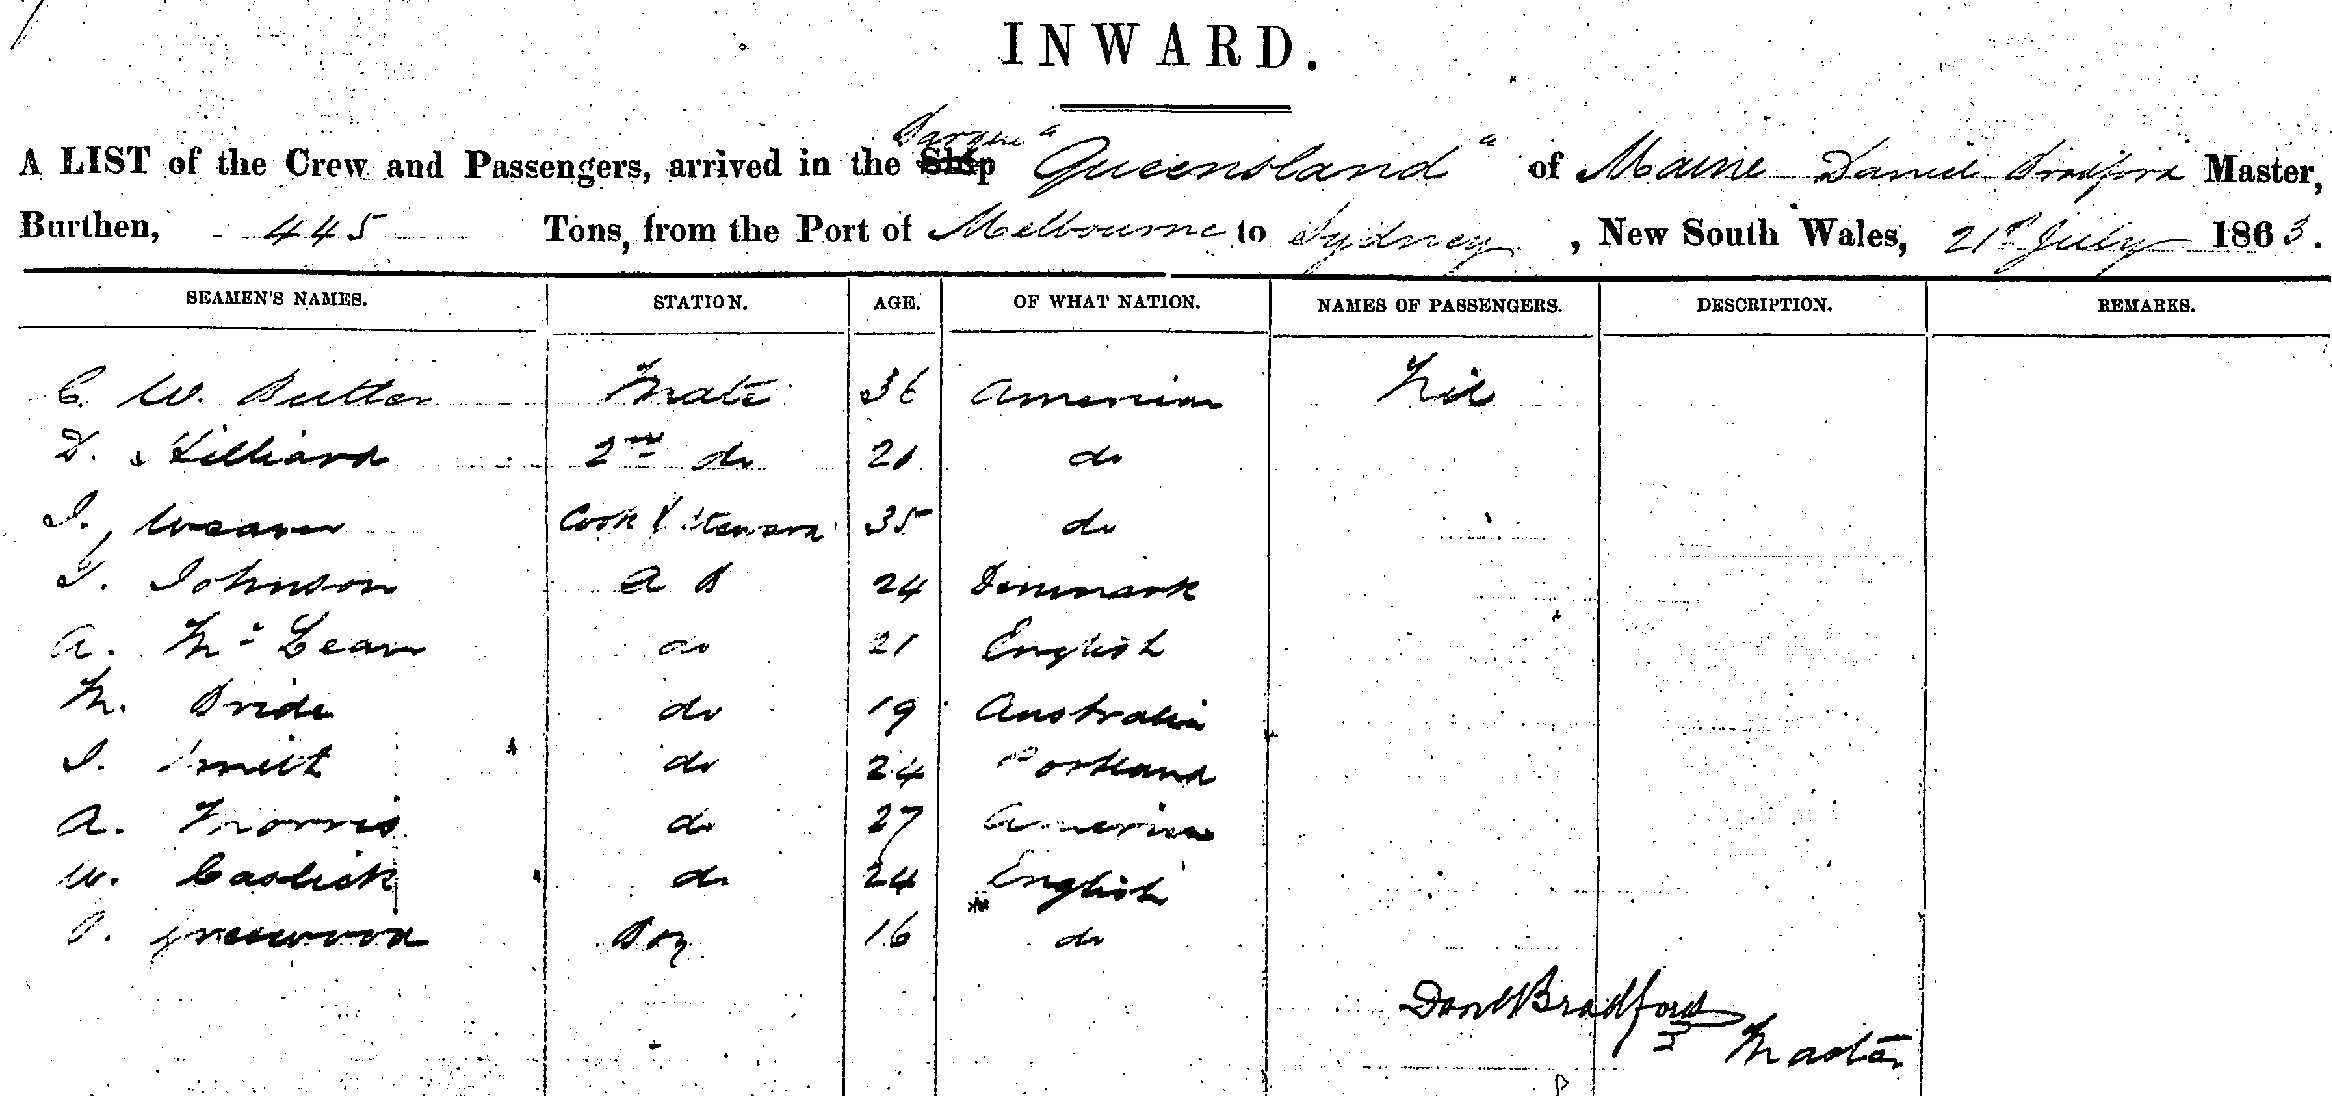 INWARD.
Barque
A LIST of the Crew and Passengers, arrived in the Ship "Queensland" of Maine Daniel Bradford Master,
Burthen, 445 Tons, from the Port of Melbourne to Sydney, New South Wales, 21st July 1863.
SEAMEN'S NAMES. STATION. AGE. OF WHAT NATION. NAMES OF PASSENGERS. DESCRIPTION. REMARKS.
C. W. Butler Mate 36 American Nil
D. Hilliard 2nd do 21 do
J. Weaver Cook & Steward 35 do
J. Johnson A B 24 Denmark
A. Mc Lean do 21 English
M. Bride do 19 Australia
J. Smith do 24 Portland
A. Morris do 27 American
W. do 24 English
Greenwood Boy 16 do
Danl Bradford
Master